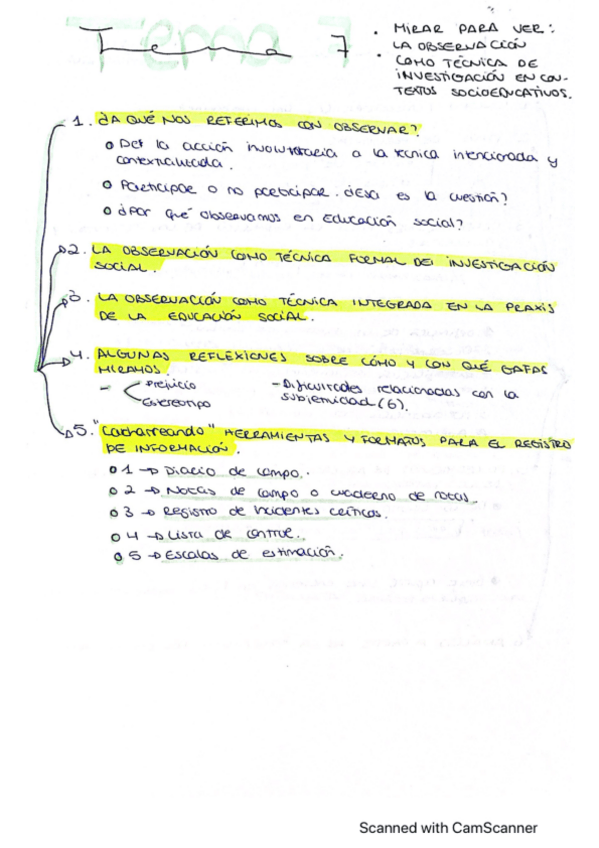 Tema 7
• MIRAR PARA VER:
• LA OBSERVACIÓN
COMO TÉCNICA DE
INVESTIGACIÓN EN CON-
TEXTOS SOCIOEDUCATIVOS.
1. ¿A QUÉ NOS REFERIMOS CON OBSERVAR?
o Del la acción involuntaria a la técnica intencionada y
contextualizada.
o Participar o no participar. ¿Esa es la cuestión?
o ¿Por qué observamos en Educación social?
2. LA OBSERVACIÓN COMO TÉCNICA FORMAL DEL INVESTIGACIÓN
SOCIAL.
3. LA OBSERVACIÓN COMO TÉCNICA INTEGRADA EN LA PRAXIS
DE LA EDUCACIÓN SOCIAL.
4. ALGUNAS REFLEXIONES SOBRE CÓMO Y CON QUÉ GAFAS
MIRAMOS.
- Prejuicio
Estereotipo
- Dificultades relacionadas con la
subjetividad (6).
5. "Cacharreando" HERRAMIENTAS Y FORMATOS PARA EL REGISTRO
DE INFORMACIÓN.
o 1 → Diario de campo.
o 2 → Notas de campo o cuaderno de notas.
o 3 → Registro de incidentes críticos.
o 4 → Lista de control.
o 5 → Escalas de estimación.
Scanned with CamScanner